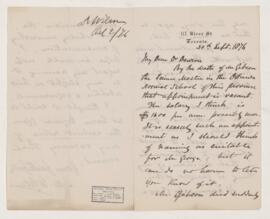 D. Wilson
Oct 2/76
117 Bloor St
Toronto.
30th Sept. 1876
My Dear Dr Dawson
By the death of Mr Gibson
the Science Master in the Ottawa
Normal School of this province
that appointment is vacant.
The salary I think, is
$1500 per ann. possibly more.
It is scarcely such an appoint-
ment as I should think
of naming as suitable
for Mr George; but it
can do no harm to let
you know of it.
Mr Gibson died suddenly